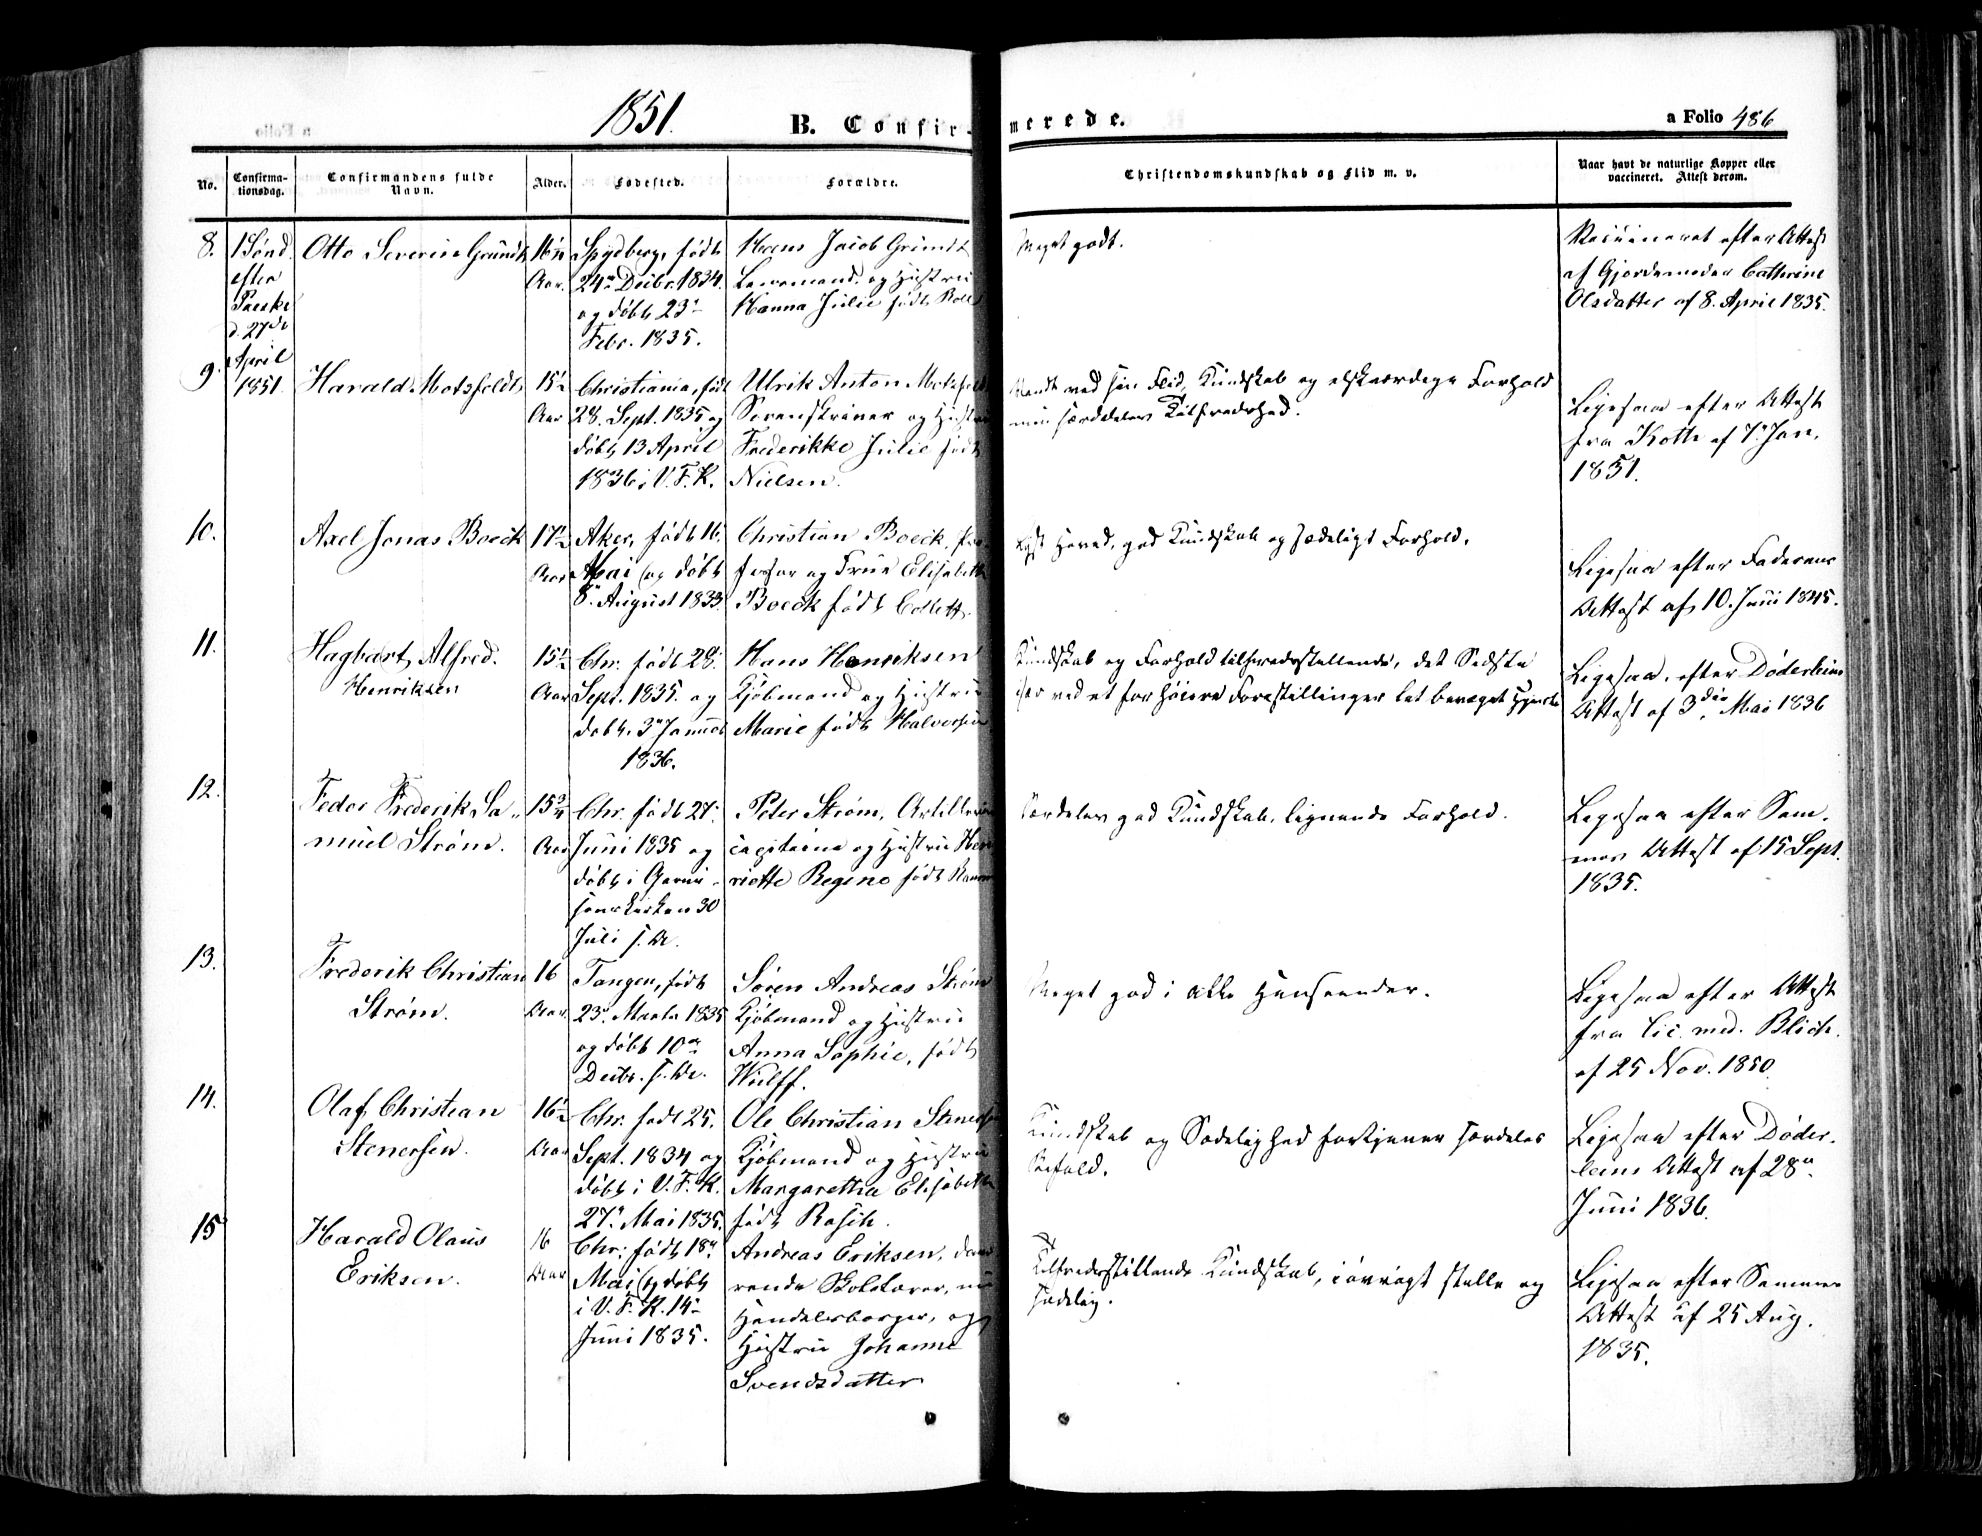 1851.
B. Confir-
merede.
a Folio 486
No.
Confirma-
tionsdag.
Confirmandens fulde
Navn.
Alder.
Fødested.
Forældre.
Christendomskundskab og Flid m. v.
Naar havt de naturlige Kopper eller
vaccineret. Attest derom.
8.
1 Sønd.
efter
Paaske
d. 27de
April
1851.
Otto Severin Grundt
16 1/2
Aar.
Spydberg, født
24de Decbr. 1834.
og døbt 23
Febr. 1835.
Jacob Grundt
Lensmand, og Hustru
Hanna Julie født
Meget godt.
Vaccineret efter Attest
af Gjordemoder Cathrine
Olsdatter af 8. April 1835.
9.
Harald Motzfeldt
15 1/2
Aar
Christiania, født
28. Sept. 1835 og
døbt 13 April
1836 i V. F. K.
Ulrik Anton Motzfeldt
Sorenskriver og Hustru
Frederikke Julie født
Nielsen.
ved sin Flid, Kundskab og elskværdige Forhold
min særdeles Tilfredshed.
Ligesaa efter Attest
fra Koth af 7. Jan.
1851.
10.
Axel Jonas Boeck
17 1/2
Aar
Aker, født 16.
Mai (og døbt
8. August 1833.
Christian Boeck, Pro-
fessor og Frue Elisabeth
Boeck født Collett.
Hoved, god Kundskab og sædeligt Forhold.
Ligesaa efter Faderens
Attest af 10. Juni 1845.
11.
Hagbart Alfred.
Henriksen
15 1/2
Aar
Chr. født 28.
Sept. 1835. og
døbt. 3. Januar
1836.
Hans Henriksen
Kjøbmand og Hustru
Marie født Halvorsen
Kundskab og Forhold tilfredsstillende, det Sidste
især ved et for høiere Forestillinger let bevæget Hjerte
Ligesaa, efter Døderleins
Attest af 3die Mai 1836
12.
Fedor Frederik Sa-
muel Strøm.
15 3/4
Aar
Chr. født 27.
Juni 1835 og
døbt i Garni-
sonskirken 30
Juli s. A.
Peter Strøm, Artilleri
capitaine og Hustru Hen
riette Regine født
Særdeles god Kundskab, lignende Forhold.
Ligesaa efter Sam-
mes Attest af 15 Sept.
1835.
13.
Frederik Christian
Strøm.
16
Aar
Tangen, født
23. Marts 1835
og døbt 10de
Decbr. s. A.
Søren Andreas Strøm
Kjøbmand og Hustru
Anna Sophie, født
Wulff.
Meget god i alle Henseender.
Ligesaa efter Attest
fra Lic. med. Blich.
af 25 Nov. 1850.
14.
Olaf Christian
Stenersen.
16 1/2
Aar
Chr. født 25.
Sept. 1834 og
døbt i V. F. K.
27. Mai 1835.
Ole Christian Stenersen
Kjøbmand og Hustru
Margaretha Elisabeth
født Rasch.
Kundskab og Sædelighed fortjener særdeles
Bifald.
Ligesaa efter Døder-
leins Attest af 28de
Juni 1836.
15
Harald Olaus
Eriksen.
16
Aar
Chr: født 18de
Mai, (og døbt
i V. F. K. 14
Juni 1835.
Andreas Eriksen,
Skolelærer, nu
Handelsborger, og
Hustru Johanne
Svendsdatter
Tilfredsstillende Kundskab, iøvrigt stille og
sædelig.
Ligesaa efter Sammes
Attest af 25 Aug.
1835.